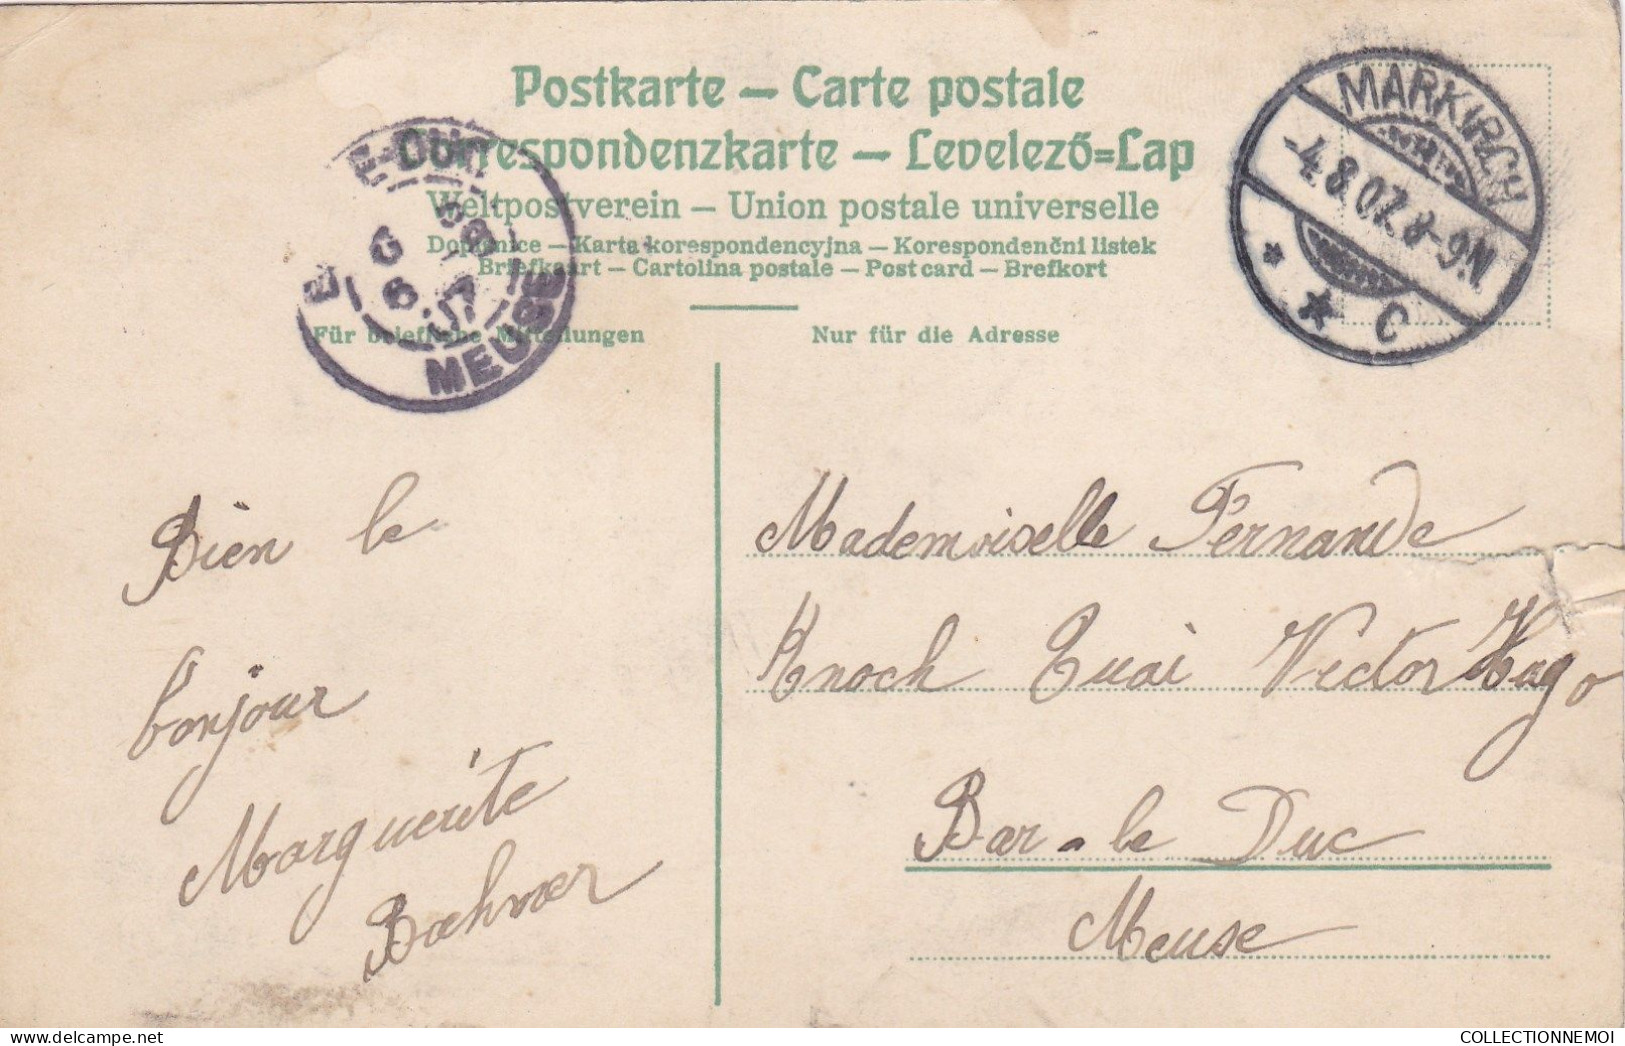 Postkarte – Carte postale
Correspondenzkarte – Levelező=Lap
Weltpostverein – Union postale universelle
Dopisnice – Karta korespondencyjna – Korespondenční listek
Briefkaart – Cartolina postale – Post card – Brefkort
Für briefliche Mitteilungen
Nur für die Adresse
MARKIRCH
-4.8.07. 8-9N.
* * C
E-DUC
MEUSE
Bien le
bonjour
Marguerite
Mademoiselle Fernande
Knoch Quai Victor Hugo
Bar-le Duc
Meuse
COLLECTIONNEMOI